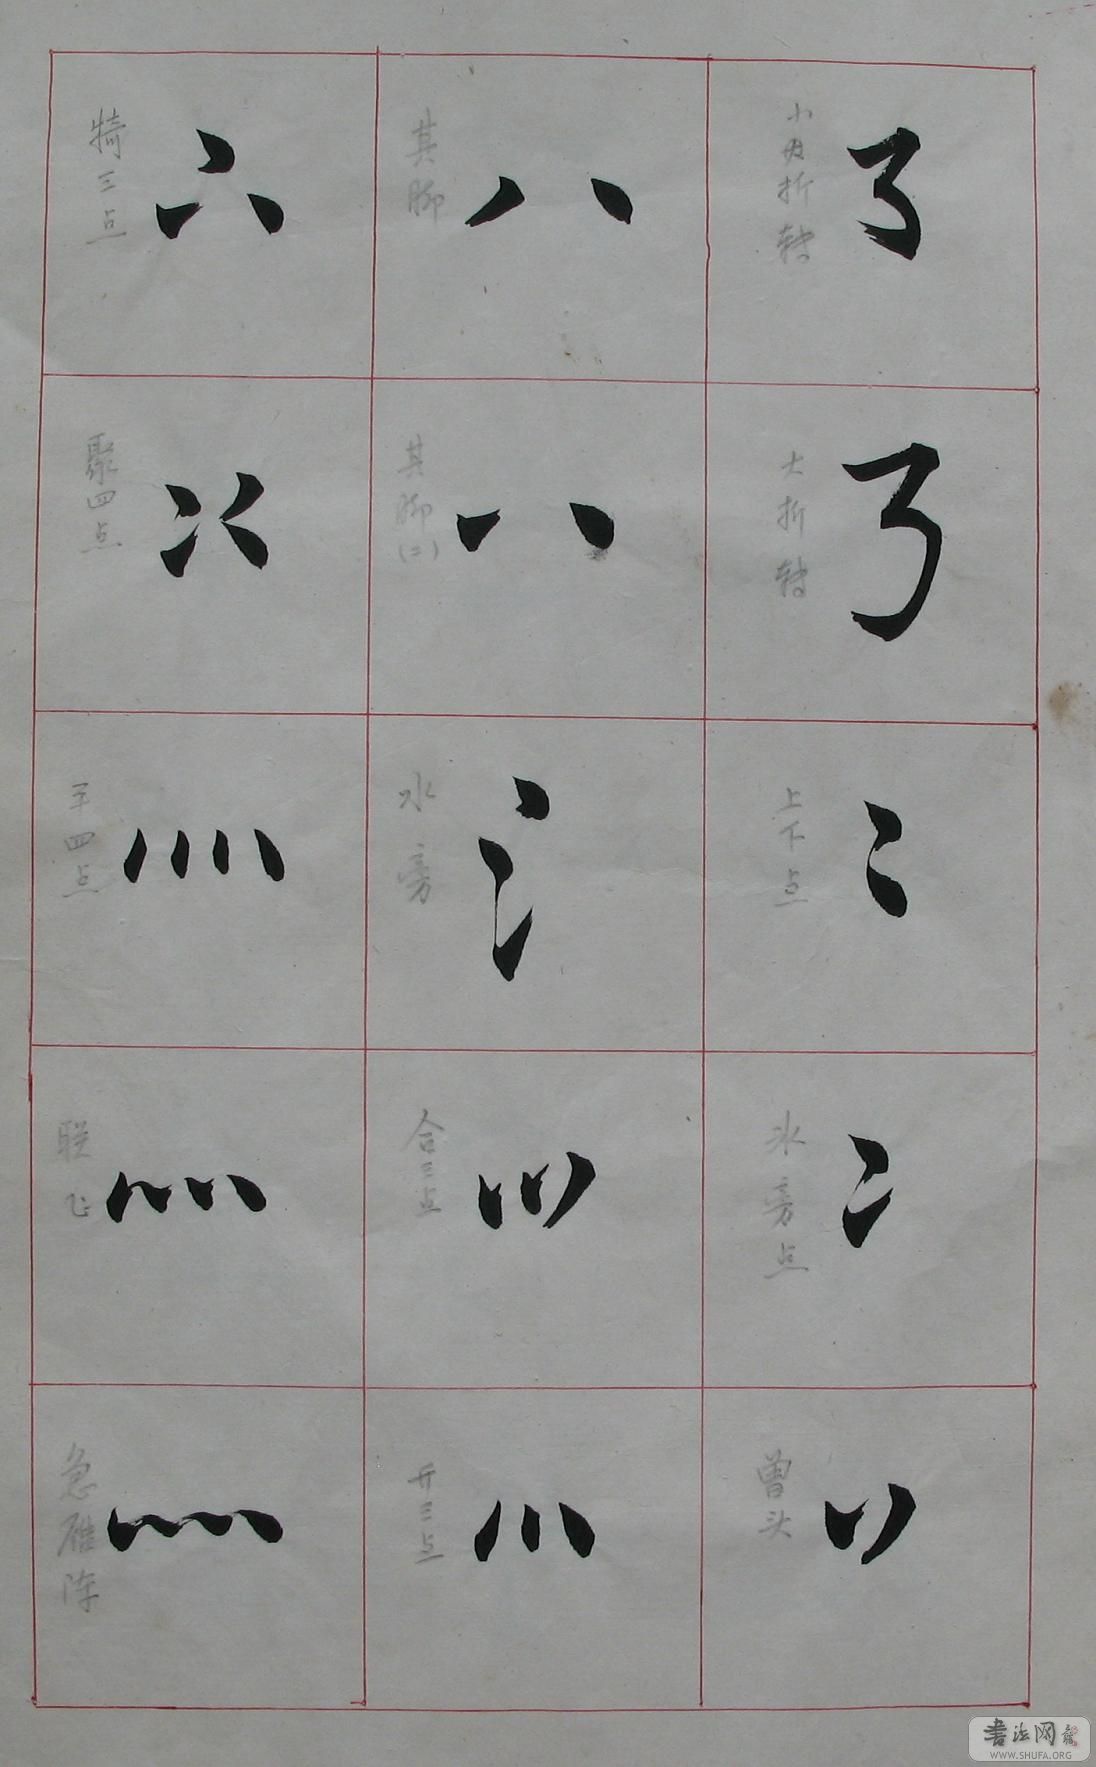 小的折转
大折转
上下点
水旁点
曾头
其脚
其脚(二)
水旁
合三点
开三点
犄三点
聚四点
平四点
联飞
急雁阵
书法网
WWW.SHUFA.ORG